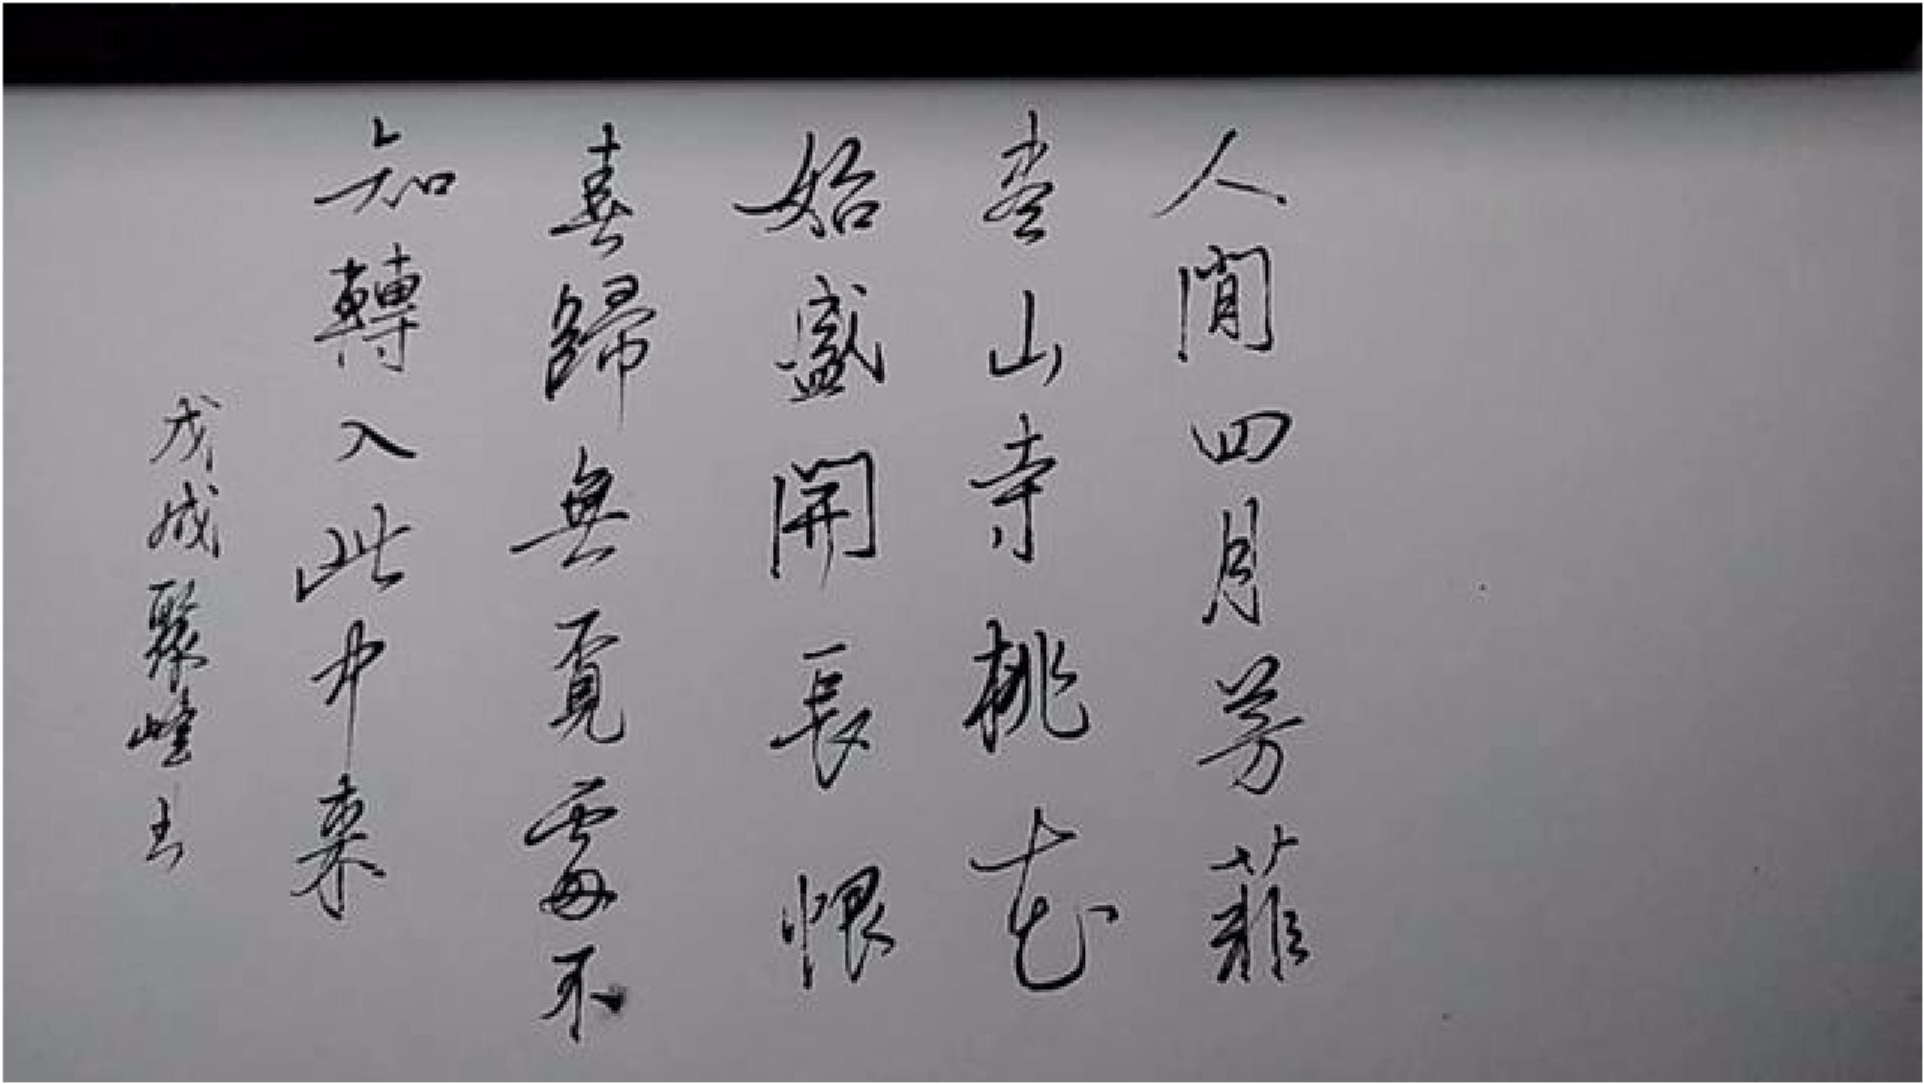 人間四月芳菲
盡山寺桃花
始盛開長恨
春歸無覓處不
知轉入此中來
戊戌聚峰書